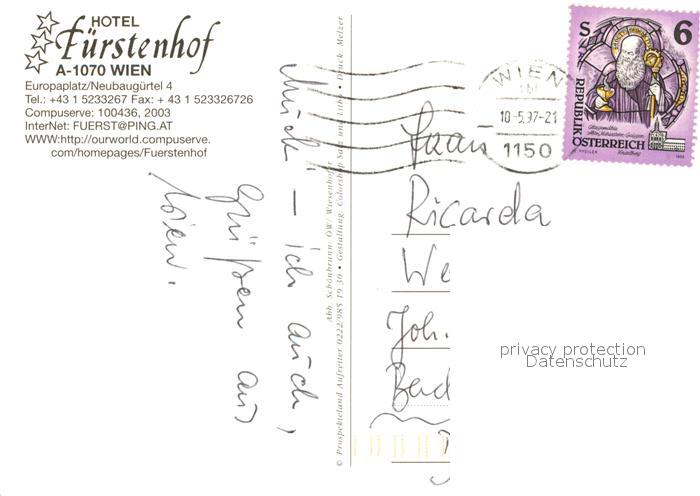 HOTEL
Fürstenhof
A-1070 WIEN
Europaplatz/Neubaugürtel 4
Tel.: +43 1 5233267 Fax: + 43 1 523326726
Compuserve: 100436, 2003
InterNet: FUERST@PING.AT
WWW:http://ourworld.compuserve.
com/homepages/Fuerstenhof
– ich auch,
Grüßen aus
Wien.
© Prospekteland Aufreiter 0222/985 19 30 • Gestaltung: Colorshop Satz und Litho • Druck: Melzer
Abb. Schönbrunn: ÖW/ Wiesenhofer
WIEN
10-5.97-21
1150
S 6
REPUBLIK
ÖSTERREICH
Frau
Ricarda
We
Joh.
Bad
privacy protection
Datenschutz